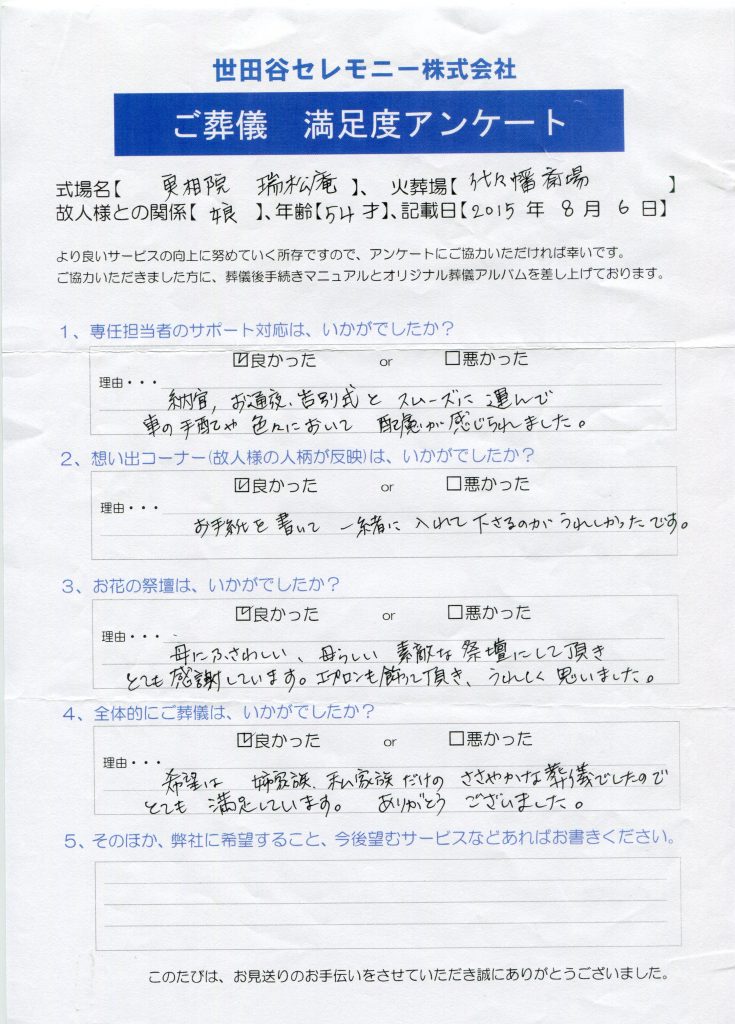 世田谷セレモニー株式会社
ご葬儀 満足度アンケート
式場名【 実相院 瑞松庵 】、 火葬場【 代々幡斎場 】
故人様との関係【 娘 】、年齢【54才】、記載日【2015年 8月 6日】
より良いサービスの向上に努めていく所存ですので、アンケートにご協力いただければ幸いです。
ご協力いただきました方に、葬儀後手続きマニュアルとオリジナル葬儀アルバムを差し上げております。
1、専任担当者のサポート対応は、いかがでしたか?
☑良かった or □悪かった
理由・・・
納官, お通夜、告別式と スムーズに 運んで
車の手配や 色々において 配慮が感じられました。
2、想い出コーナー(故人様の人柄が反映)は、いかがでしたか?
☑良かった or □悪かった
理由・・・
お手紙を 書いて 一緒に 入れて 下さるのが うれしかったです。
3、お花の祭壇は、いかがでしたか?
☑良かった or □悪かった
理由・・・
母にふさわしい、母らしい 素敵な 祭壇にして頂き
とても 感謝しています。エプロンも飾って頂き、うれしく 思いました。
4、全体的にご葬儀は、いかがでしたか?
☑良かった or □悪かった
理由・・・
希望は 姉家族、私家族だけの ささやかな葬儀でしたので
とても 満足しています。 ありがとう ございました。
5、そのほか、弊社に希望すること、今後望むサービスなどあればお書きください。
このたびは、お見送りのお手伝いをさせていただき誠にありがとうございました。